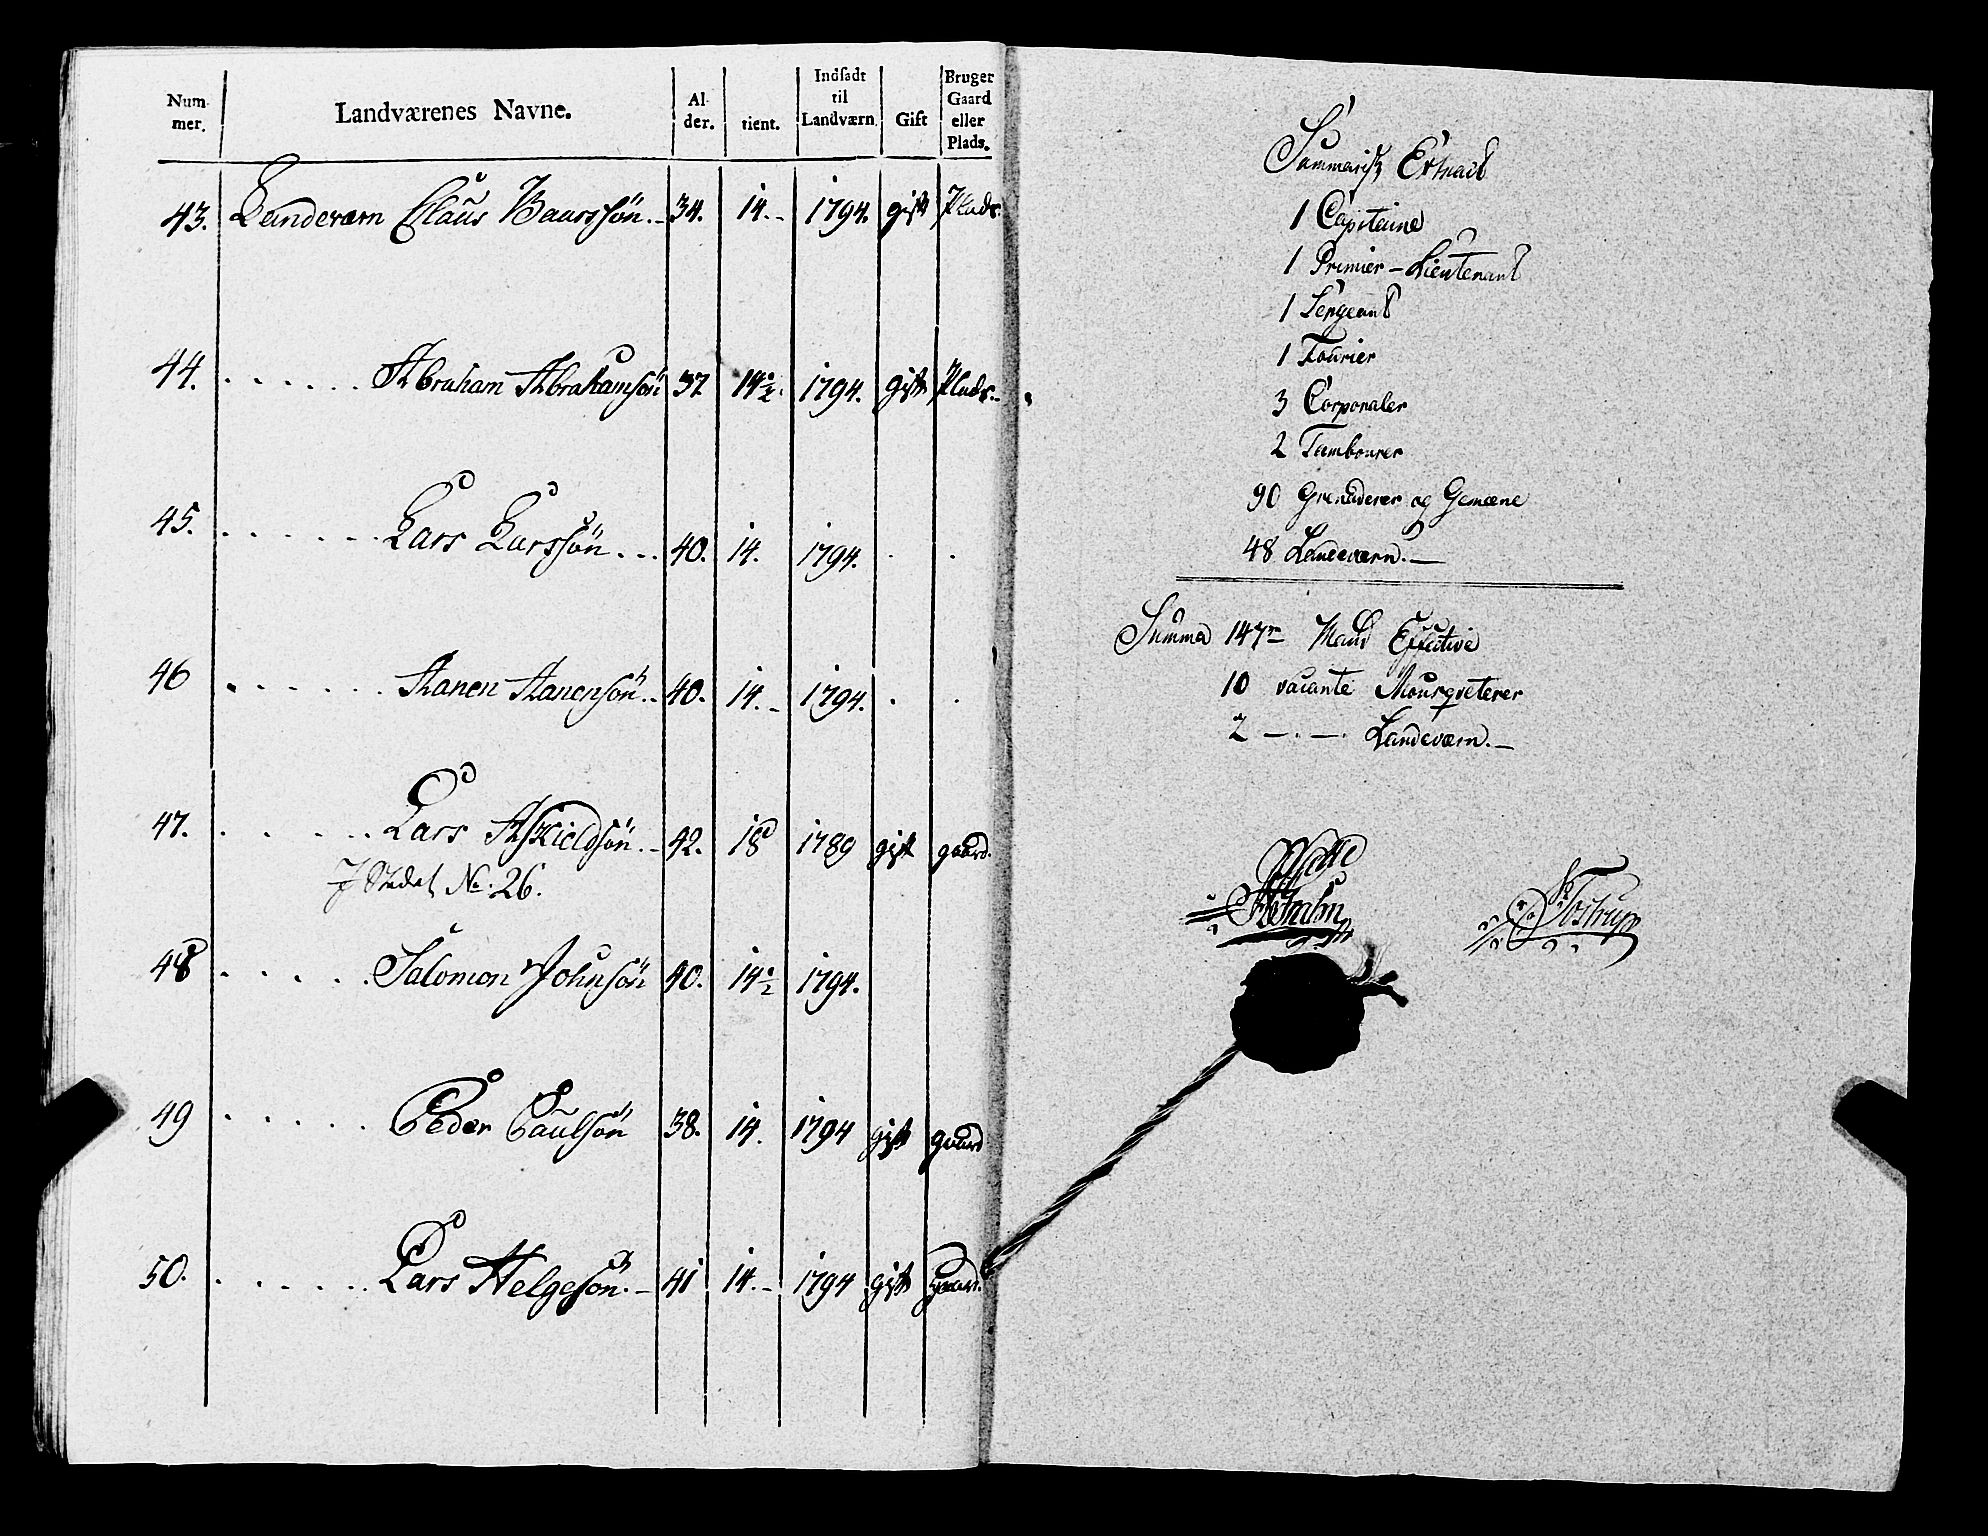 Num-mer. Landværenes Navne. Al-der. tient. Indsadt til Landværn. Gift Bruger Gaard eller Plads.
43. Landeværn Claus Baarssøn. 34. 14. 1794. gift Plads.
44. Abraham Abrahamsøn 37 14½. 1794. gift Plads.
45. Lars Larssøn 40. 14. 1794.
46 Aanen Aanensøn 40. 14. 1794.
47. Lars Askieldsøn 42. 18 1789 gift gaard.
I Stedet No: 26.
48 Salomon Johnsøn 40. 14½ 1794.
49 Peder Paulsøn 38. 14. 1794 gift gaard
50. Lars Helgesøn. 41 14. 1794 gift gaard.
Summarisk Extract
1 Capitaine
1 Premier-Lieutenant
1 Sergeant
1 Fourier
3 Corporaler
2 Tambourer
90 Grenaderer og Gemeene
48 Landeværn.
Summa 147 Mand Effective
10 vacante Mousqveterer
2 —.—. Landeværn.